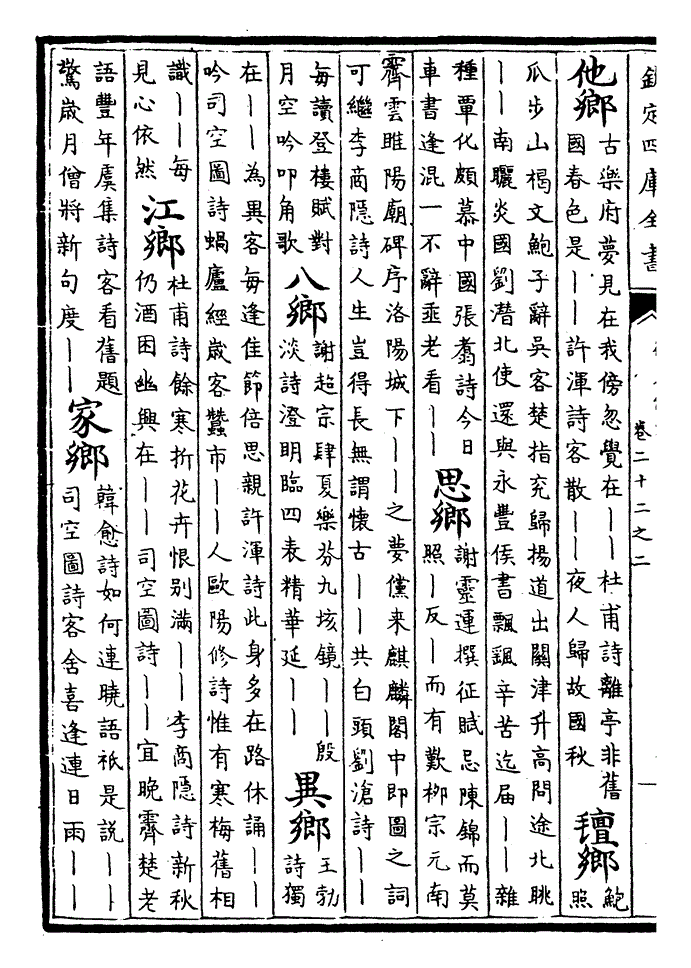 欽定四庫全書
卷二十二之二
他鄉
古樂府夢見在我傍忽覺在——杜甫詩離亭非舊
國春色是——許渾詩客散——夜人歸故國秋
氊鄉
鮑
照
瓜步山楬文鮑子辭吳客楚指兖歸揚道出關津升高問途北眺
——南曬炎國劉潛北使還與永豐侯書飄飖辛苦迄届——雜
種覃化頗慕中國張翥詩今日
車書逢混一不辭垂老看——
思鄉
謝靈運撰征賦忌陳錦而莫
照—反—而有歎柳宗元南
霽雲睢陽廟碑序洛陽城下———之夢儻来麒麟閣中即圖之詞
可繼李商隱詩人生豈得長無謂懷古——共白頭劉滄詩——
每讀登樓賦對
月空吟叩角歌
八鄉
謝超宗肆夏樂芬九垓鏡——殷
淡詩澄明臨四表精華延——
異鄉
王勃
詩獨
在——為異客每逢佳節倍思親許渾詩此身多在路休誦——
吟司空圖詩蝸廬經嵗客蠶市——人歐陽修詩惟有寒梅舊相
識——每
見心依然
江鄉
杜甫詩餘寒折花卉恨别滿——李商隱詩新秋
仍酒困幽興在——司空圖詩——宜晚霽楚老
語豐年虞集詩客看舊題
驚嵗月僧將新句度——
家鄉
韓愈詩如何連曉語祇是說——
司空圖詩客舍喜逢連日雨——